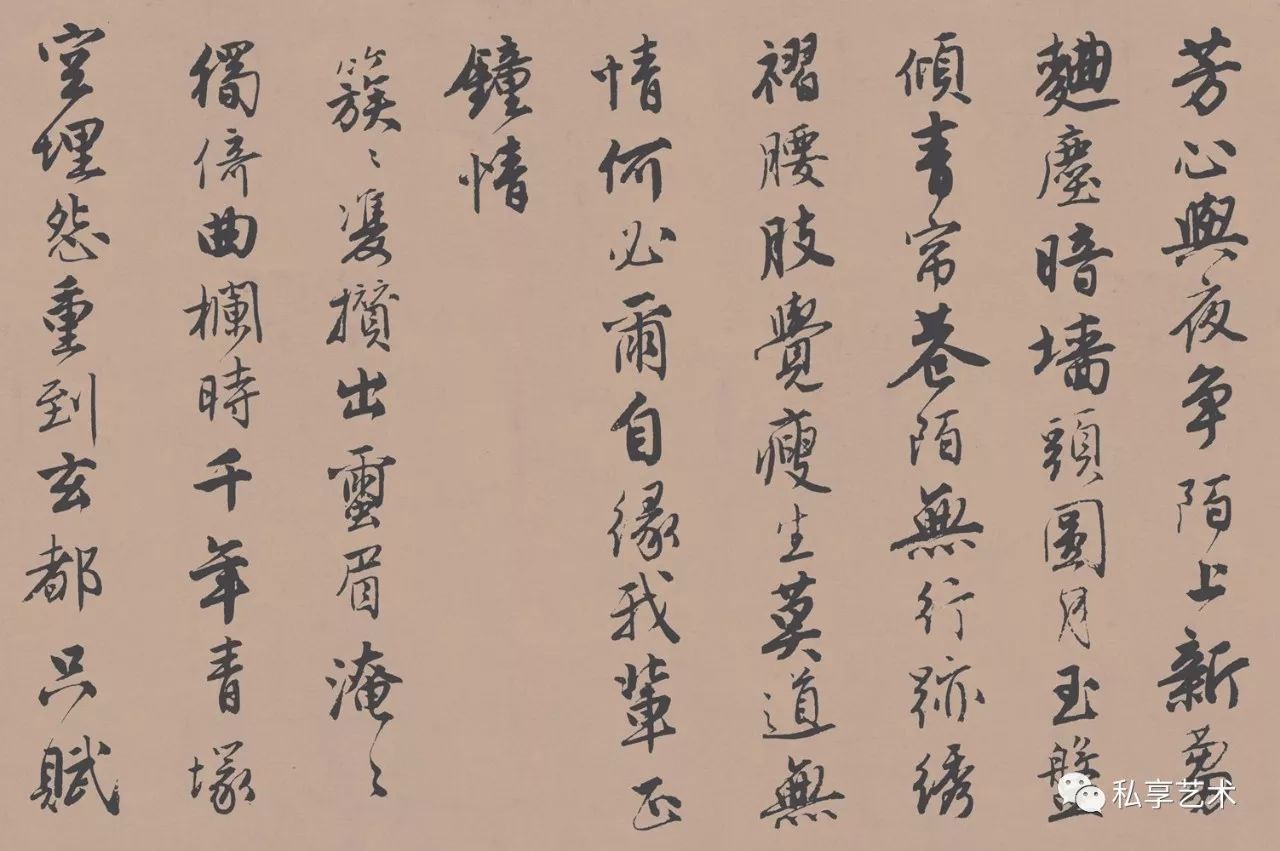 芳心與夜争陌上新蒭
麯塵暗墻頭圓月玉盤
傾青帘巷陌無行跡綉
褶腰肢覺瘦生莫道無
情何必爾自緣我輩正
鐘情
簇〻雙攢出蠒眉淹〻
獨倚曲欄時千年青塚
空埋怨重到玄都只賦
私享艺术